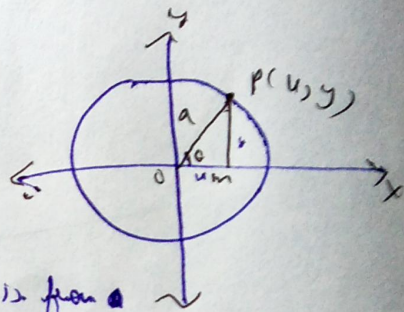 y
P(x,y)
a
θ
y
O
x
m
X
is from